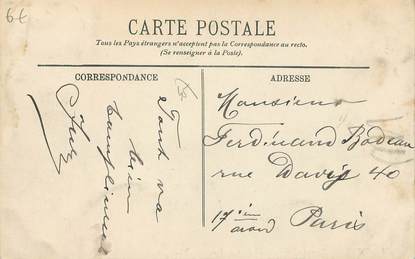 6€
CARTE POSTALE
Tous les Pays étrangers n'acceptent pas la Correspondance au recto.
(Se renseigner à la Poste).
CORRESPONDANCE
Tout va
bien
ADRESSE
Monsieur
Ferdinand Bodeau
rue Davy 40
17ième
Paris